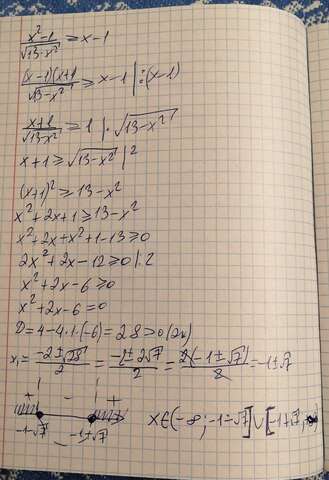 x²-1/√13-x² ≥ x-1
(x-1)(x+1)/√13-x² ≥ x-1 | :(x-1)
x+1/√13-x² ≥ 1 | ·√13-x²
x+1 ≥ √13-x² |²
(x+1)² ≥ 13-x²
x²+2x+1 ≥ 13-x²
x²+2x+x²+1-13 ≥ 0
2x²+2x-12 ≥ 0 |:2
x²+2x-6 ≥ 0
x²+2x-6=0
D=4-4·1·(-6)=28>0 (2x)
x₁= -2±√28/2 = -2±2√7/2 = 2(-1±√7)/2 = -1±√7
+ - +
-1-√7 -1+√7 x∈(-∞;-1-√7]∪[-1+√7;∞)